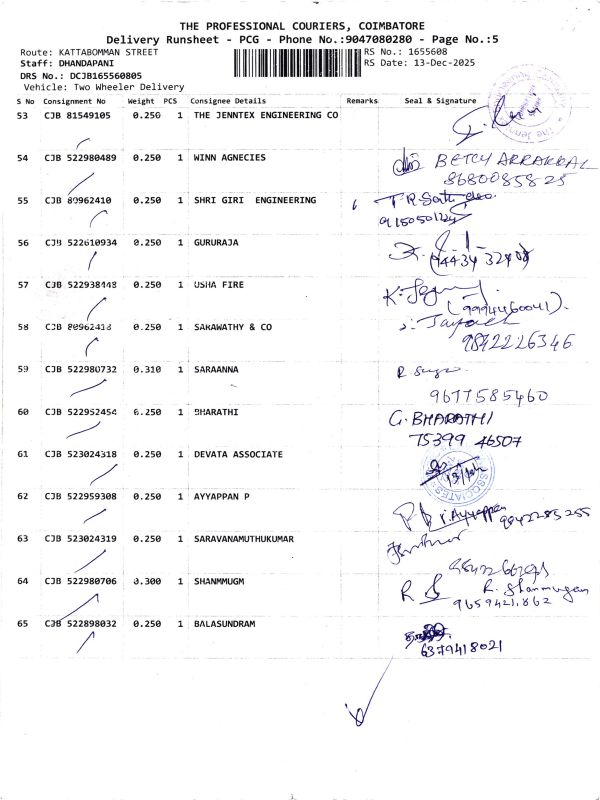 THE PROFESSIONAL COURIERS, COIMBATORE
Delivery Runsheet - PCG - Phone No.:9047080280 - Page No.:5
Route: KATTABOMMAN STREET RS No.: 1655608
Staff: DHANDAPANI RS Date: 13-Dec-2025
DRS No.: DCJB165560805
Vehicle: Two Wheeler Delivery
S No Consignment No Weight PCS Consignee Details Remarks Seal & Signature
53 CJB 81549105 0.250 1 THE JENNTEX ENGINEERING CO
54 CJB 522980489 0.250 1 WINN AGNECIES BETCY ARRAKKAL
8680085825
55 CJB 80962410 0.250 1 SHRI GIRI ENGINEERING
56 CJB 522610934 0.250 1 GURURAJA
57 CJB 522938448 0.250 1 USHA FIRE
(9994460041).
58 CJB 80962418 0.250 1 SARAWATHY & CO
9842226346
59 CJB 522980732 0.310 1 SARAANNA
9677585460
60 CJB 522952454 0.250 1 BHARATHI G. BHARATHI
75399 46507
61 CJB 523024318 0.250 1 DEVATA ASSOCIATE
62 CJB 522959308 0.250 1 AYYAPPAN P
Ayyappan 9842285255
63 CJB 523024319 0.250 1 SARAVANAMUTHUKUMAR
64 CJB 522980706 0.300 1 SHANMMUGM R. Shanmugam
9659421862
65 CJB 522898032 0.250 1 BALASUNDRAM
6379418021